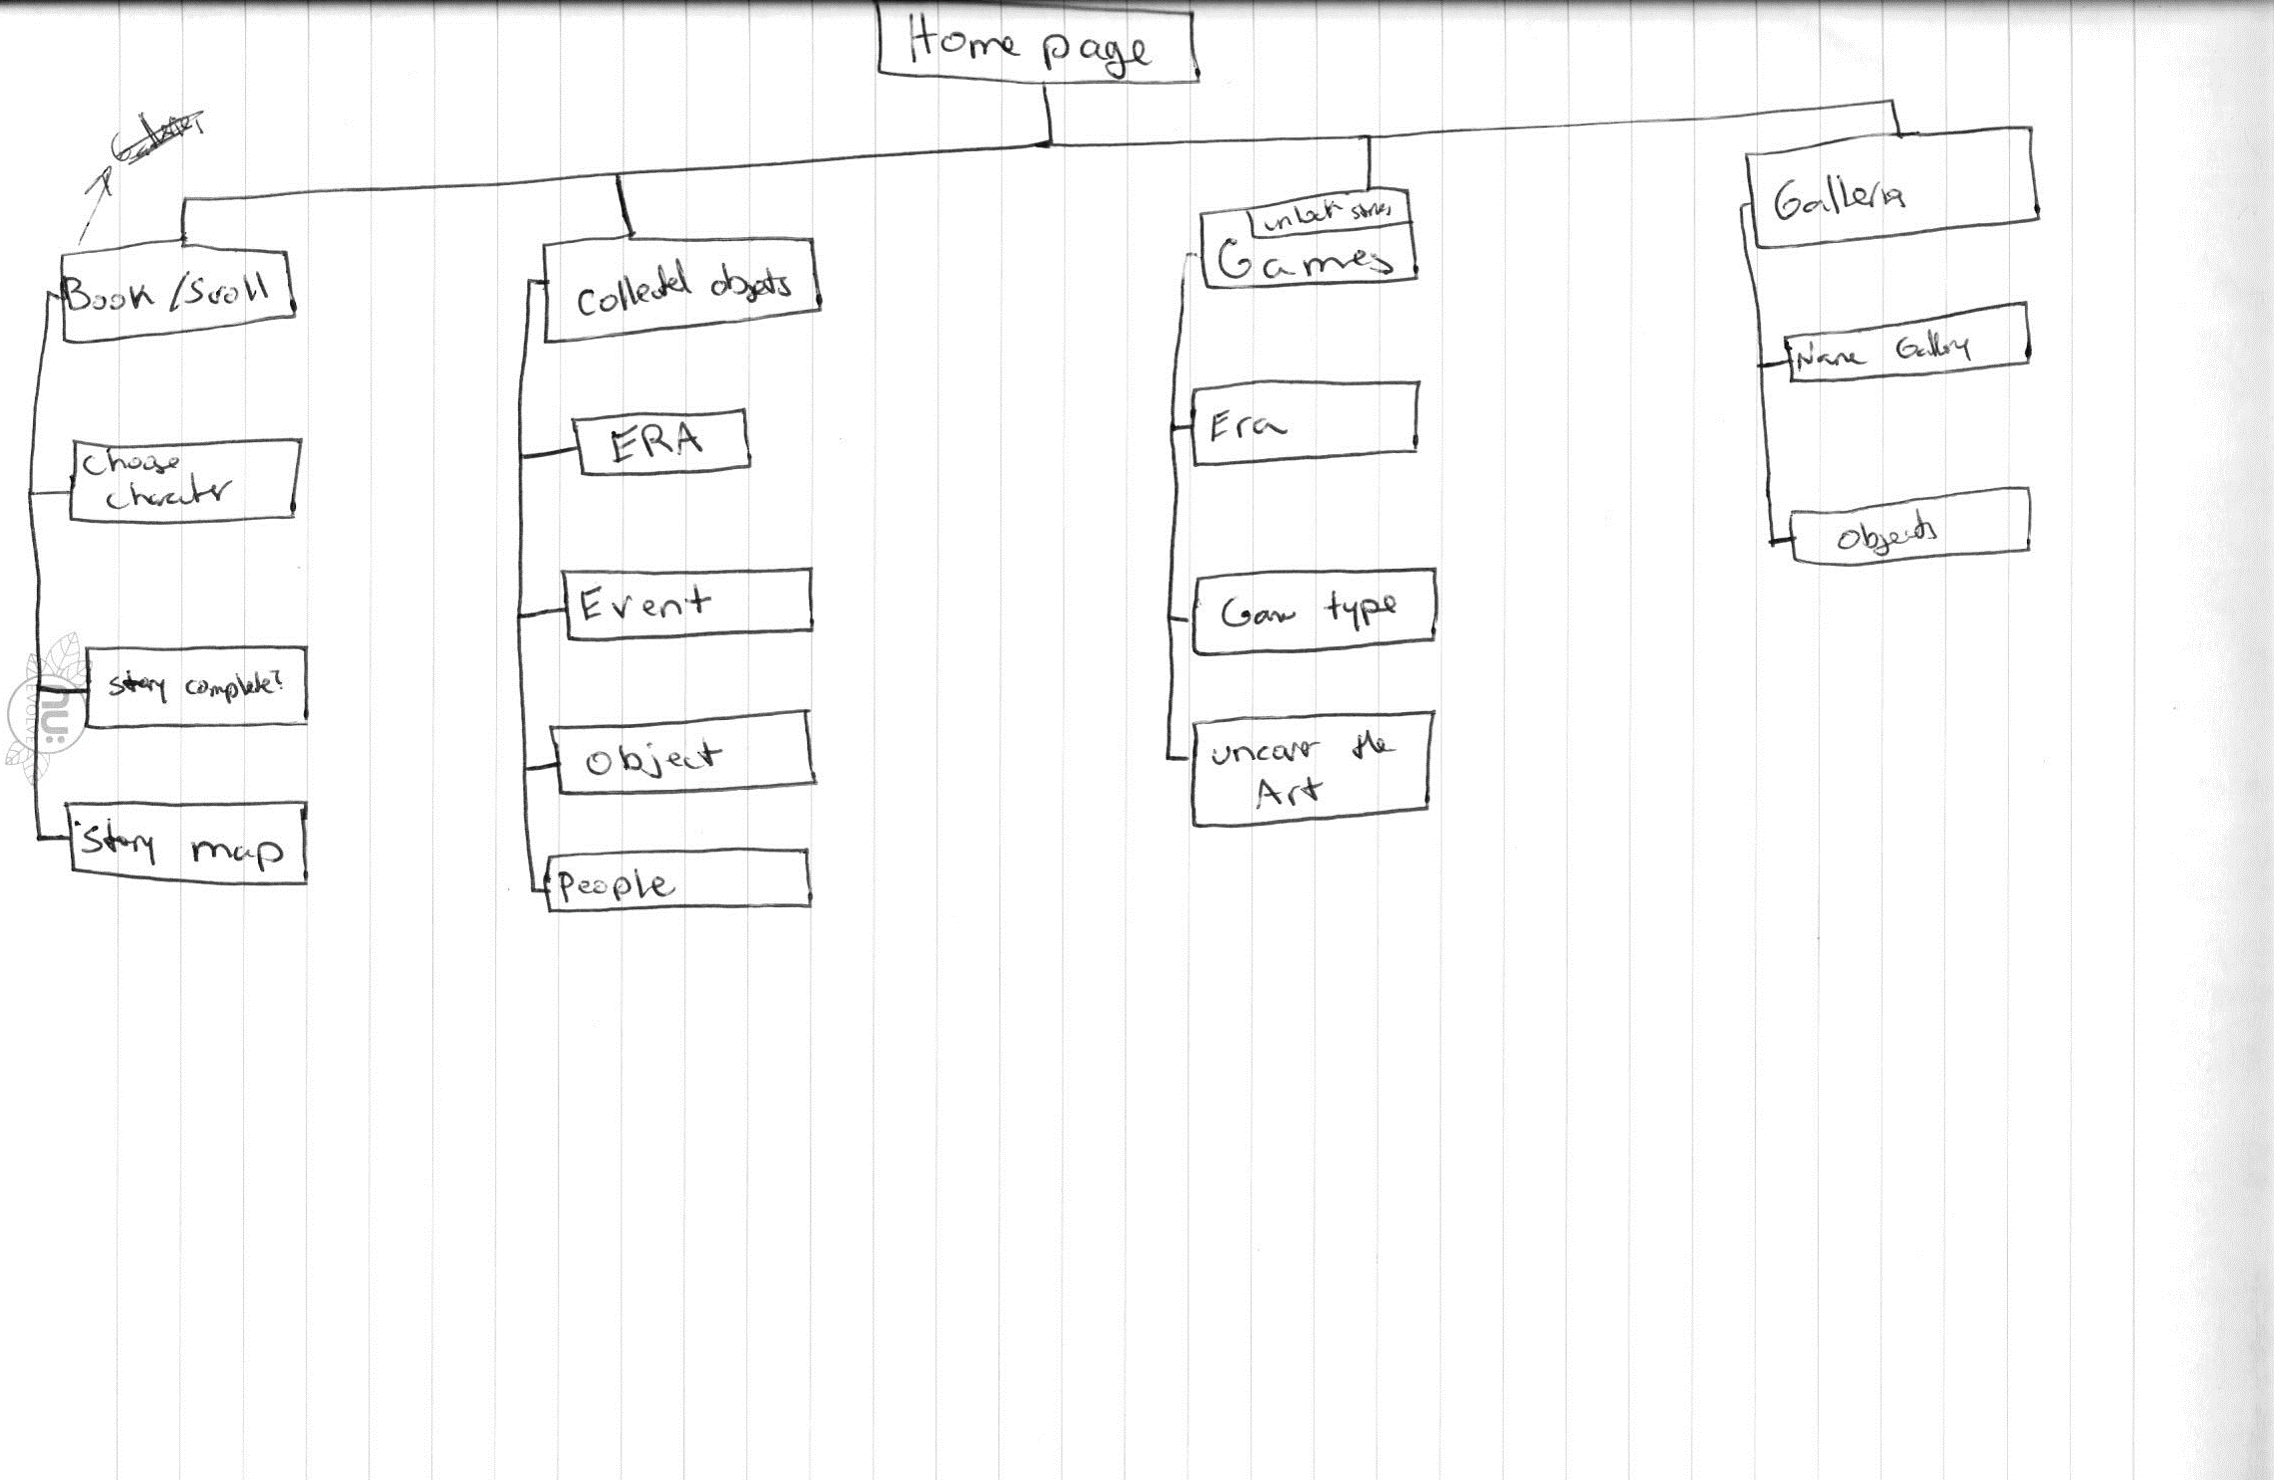 Home page
Book / Scroll
Choose
character
Story complete?
Story map
Collected objects
ERA
Event
Object
People
unlock stories
Games
Era
Game type
uncover the
Art
Galleria
Name Gallery
Objects
nu:
EVOLVE